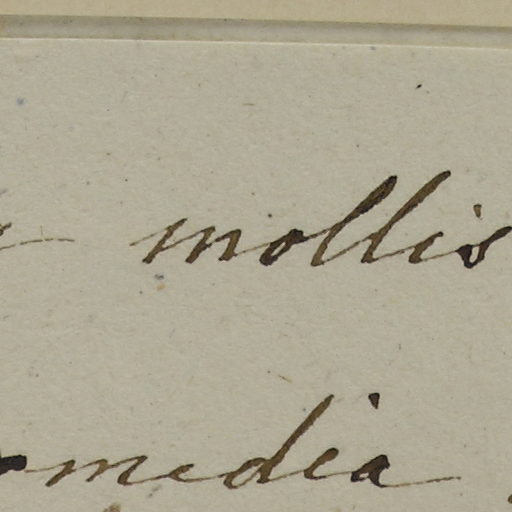 mollis
media